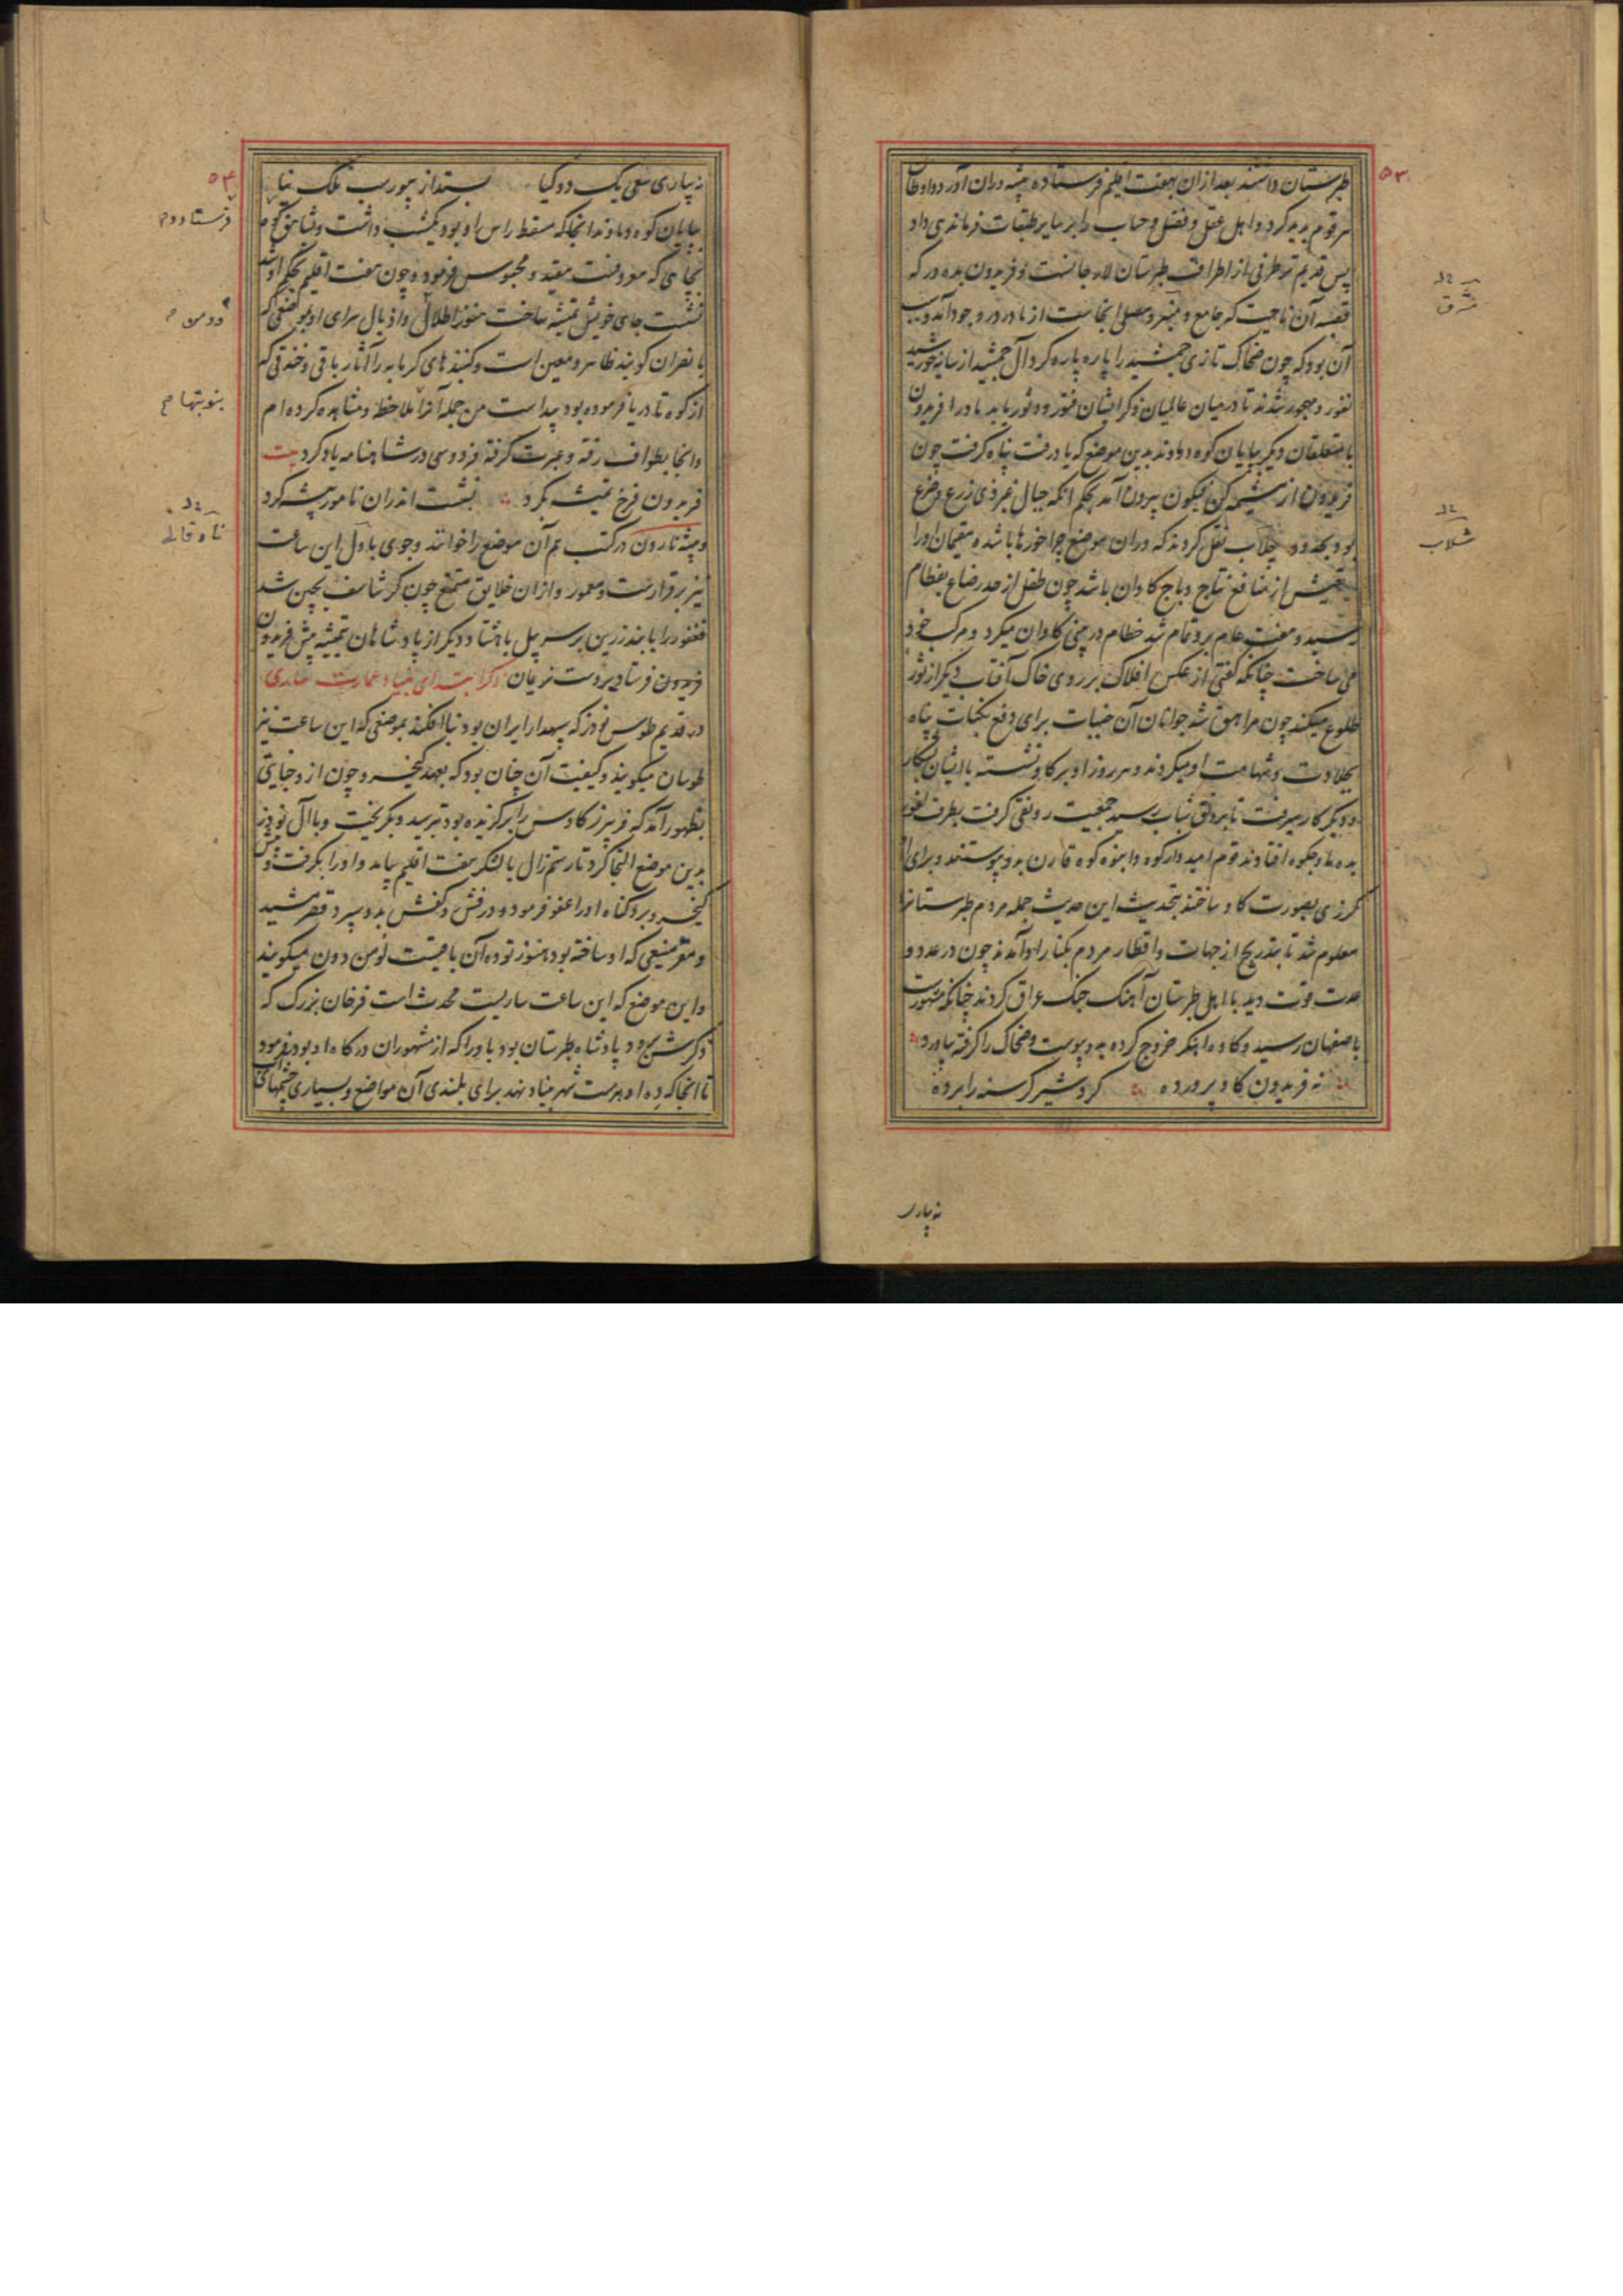 ۵۳
طبرستان داشتند بعد از ان بهفت اقلیم فرستاده پیشه وران آورد و اوطان
هر قوم پدید کرد و اهل عقل و فضل و حساب را بر سایر طبقات فرماندهی داد
پس قدیم تر طرفی از اطراف طبرستان لارجانست و فریدون بده ورکه
قصبه آن ناحیت که جامع و منبر و مصلی انجاست از مادر در وجود آمد و سبب
آن بود که چون ضحاک تازی جمشید را پاره پاره کرد آل جمشید از سایه خورشید
نفور و مهجور شدند تا در میان عالمیان ذکر ایشان فتور و دثور یابد مادر افریدون
با متعلقان دیگر بپایان کوه دماوند بدین موضع که یاد رفت پناه گرفت چون
فریدون از مشیمه کن فیکون بیرون آمد بحکم آنکه جبال غیر ذی زرع و ضرع
بود بحدود چلاب نقل کردند که دران موضع چراخورها باشد و مقیمان اورا
تعیش از منافع نتاج و باج گاوان باشد چون طفل از حد رضاع بفطام
رسید و هفت عام برو تمام شد خطام در بینی گاوان میکرد و مرکب خود
می ساخت چنانکه گفتی از عکس افلاک بر روی خاک آفتاب دیگر از ثور
طلوع میکند چون مراهق شد جوانان آن جنبات برای دفع نکبات پناه
بجلادت و شهامت او میکردند و هر روز او بر گاو نشسته با ایشان بشکار
و دیگر کار میرفت تا برونق شباب رسید جمعیت رونقی گرفت بطرف لفور
بده ماوجکوه افتادند قوم امیدوار کوه و انبوه کوه قارن بدو پیوستند و برای او
گرزی بصورت گاو ساختند بتحدیث این حدیث جمله مردم طبرستانرا
معلوم شد تا بتدریج از جهات و اقطار مردم بکنار او آمدند چون در عدد و
عدت قوت دید با اهل طبرستان آهنک جنک عراق کردند چنانکه مشهورست
باصفهان رسید و کاوه اهنگر خروج کرده بدو پیوست و ضحاک را گرفته بیاورد
نه فریدون گاو پرورده کرد شیر گرسنه را برده
نه بیاری
شرق
شلاب
۵۴
نه بیاری سعی یک دو گیا بستد از بیورسب ملک نیا
بپایان کوه دماوند انجا که مسقط راس او بود یکشب داشت و بشاهق کوه
بجای که معروفست مقید و محبوس فرمود و چون هفت اقلیم بحکم او شد
نشست جای خویش تمیشه ساخت هنوز اطلال و اذیال سرای او بموضعی که
بانصران گویند ظاهر و معین است و گنبذهای گرمابه را آثار باقی و خندقی که
از کوه تا دریا فرموده بود پیداست من جمله آنرا ملاحظه و مشاهده کرده ام
و انجا بطواف رفته و عبرت گرفته فردوسی در شاهنامه یاد کرد بیت
فریدون فرخ تمیشه بکرد نشست اندران نامور بیشه کرد
و بیشه نارون در کتب هم آن موضع را خوانند و جوی باول این ساعت
نیز برقرارست و معمور و ازان خلایق متمتع چون گرشاسف بچین شد
فغفور را با بند زرین بر سر پیل با هشتاد دیگر از پادشاهان تمیشه پیش فریدون
فریدون فرستاد بر دست نریمان ذکر ابتدای بنیاد عمارت ساری
در قدیم طوس نوذر که سپهدار ایران بود بنا افکند بموضعی که این ساعت نیز
طوسان میگویند و کیفیت آن چنان بود که بعهد کیخسرو چون از و خیانتی
بظهور آمد که فریبرز کاوس را برگزیده بود بترسید و بگریخت و با آل نوذر
بدین موضع التجا کرد تا رستم زال با لشکر هفت اقلیم بیامد و اورا بگرفت و پیش
کیخسرو برد گناه اورا عفو فرمود و درفش و کفش بدو سپرد قصر مشید
و مقر منیعی که او ساخته بود هنوز توده آن باقیست لومن دون میگویند
و این موضع که این ساعت ساریست محدث است فرخان بزرگ که
ذکرش برود پادشاه طبرستان بود باو را که از مشهوران درگاه او بود بفرمود
تا انجا که ده اوهرست شهر بنیاد نهد برای بلندی آن مواضع و بسیاری چشمهای
دومن